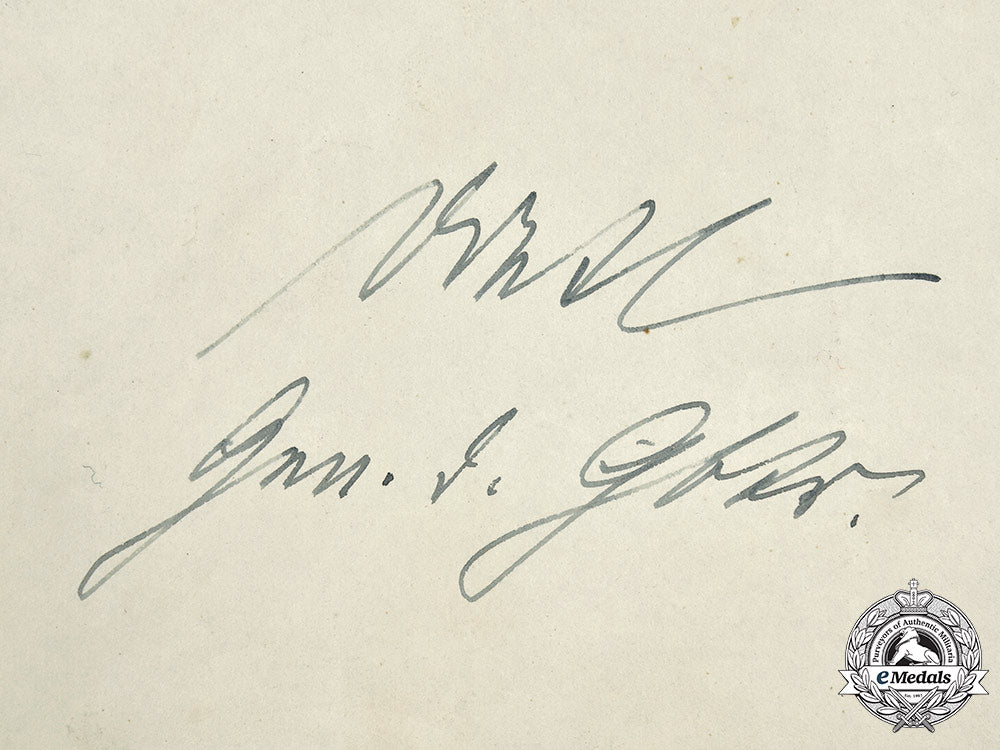 Gen. d. Gbtr.
Purveyors of Authentic Militaria
eMedals
Est. 1967